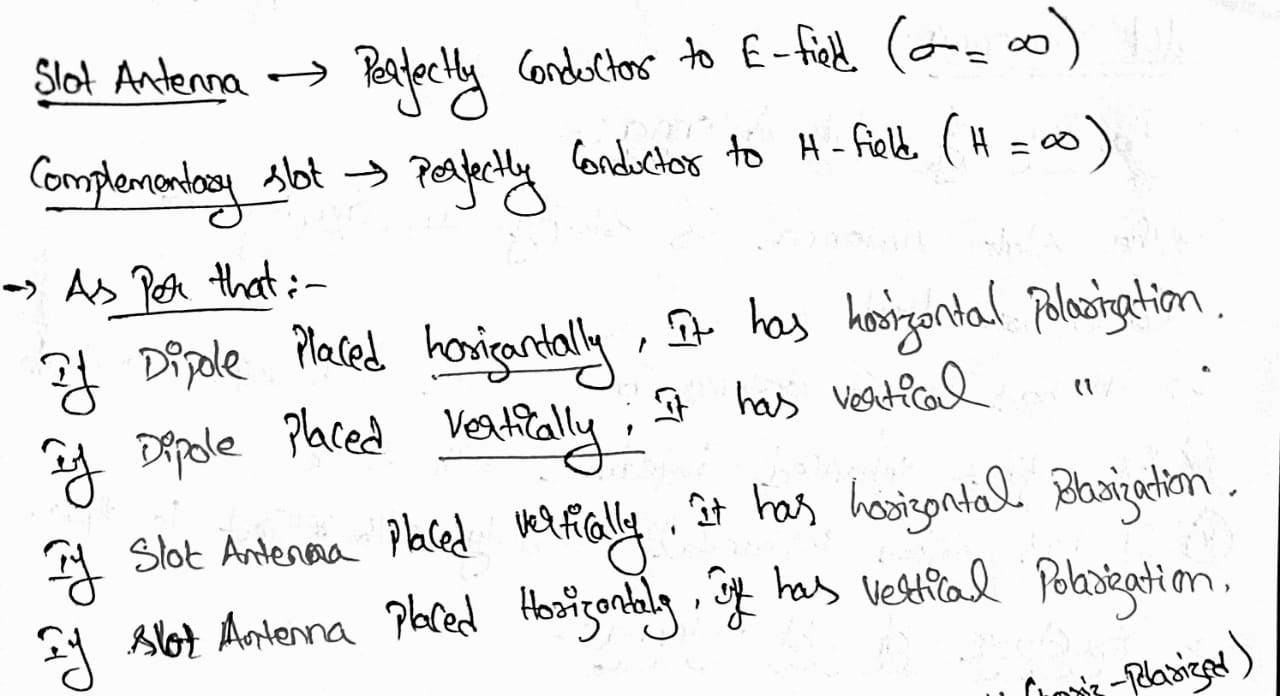 Slot Antenna → Perfectly Conductor to E-field (σ = ∞)
Complementary slot → Perfectly Conductor to H-field (H = ∞)
→ As Per that :-
If Dipole Placed horizantally, It has horizontal Polarization.
If Dipole Placed Vertically, It has vertical " .
If Slot Antenna Placed vertically, It has horizontal Polarization.
If Slot Antenna Placed Horizontaly, If has Vertical Polarization.
-Polarized)